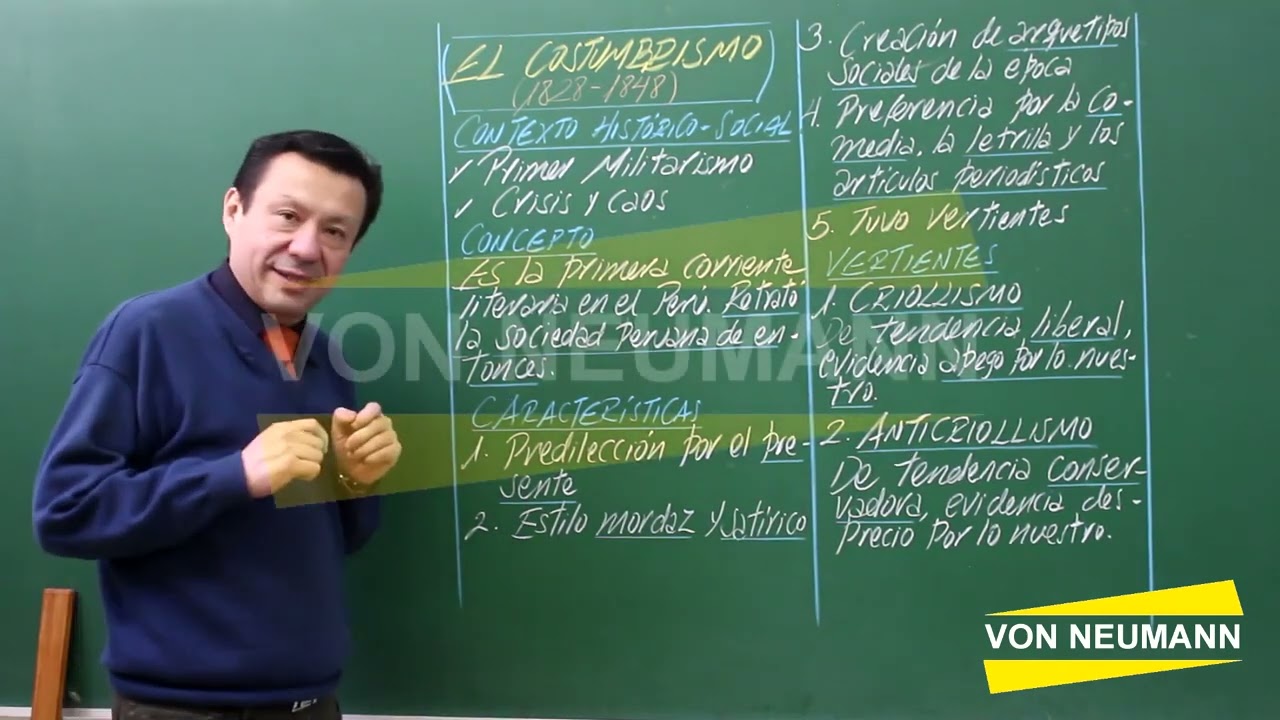 EL COSTUMBRISMO
(1828-1848)
CONTEXTO HISTÓRICO-SOCIAL
✓ Primer Militarismo
✓ Crisis y caos
CONCEPTO
Es la primera corriente
literaria en el Perú. Retrató
la sociedad peruana de en-
tonces.
CARACTERÍSTICAS
1. Predilección por el pre-
sente
2. Estilo mordaz y satírico
3. Creación de arquetipos
sociales de la época
4. Preferencia por la co-
media, la letrilla y los
artículos periodísticos
5. Tuvo vertientes
VERTIENTES
1. CRIOLLISMO
De tendencia liberal,
evidencia apego por lo nues-
tro.
2. ANTICRIOLLISMO
De tendencia conser-
vadora, evidencia des-
precio por lo nuestro.
VON NEUMANN
VON NEUMANN